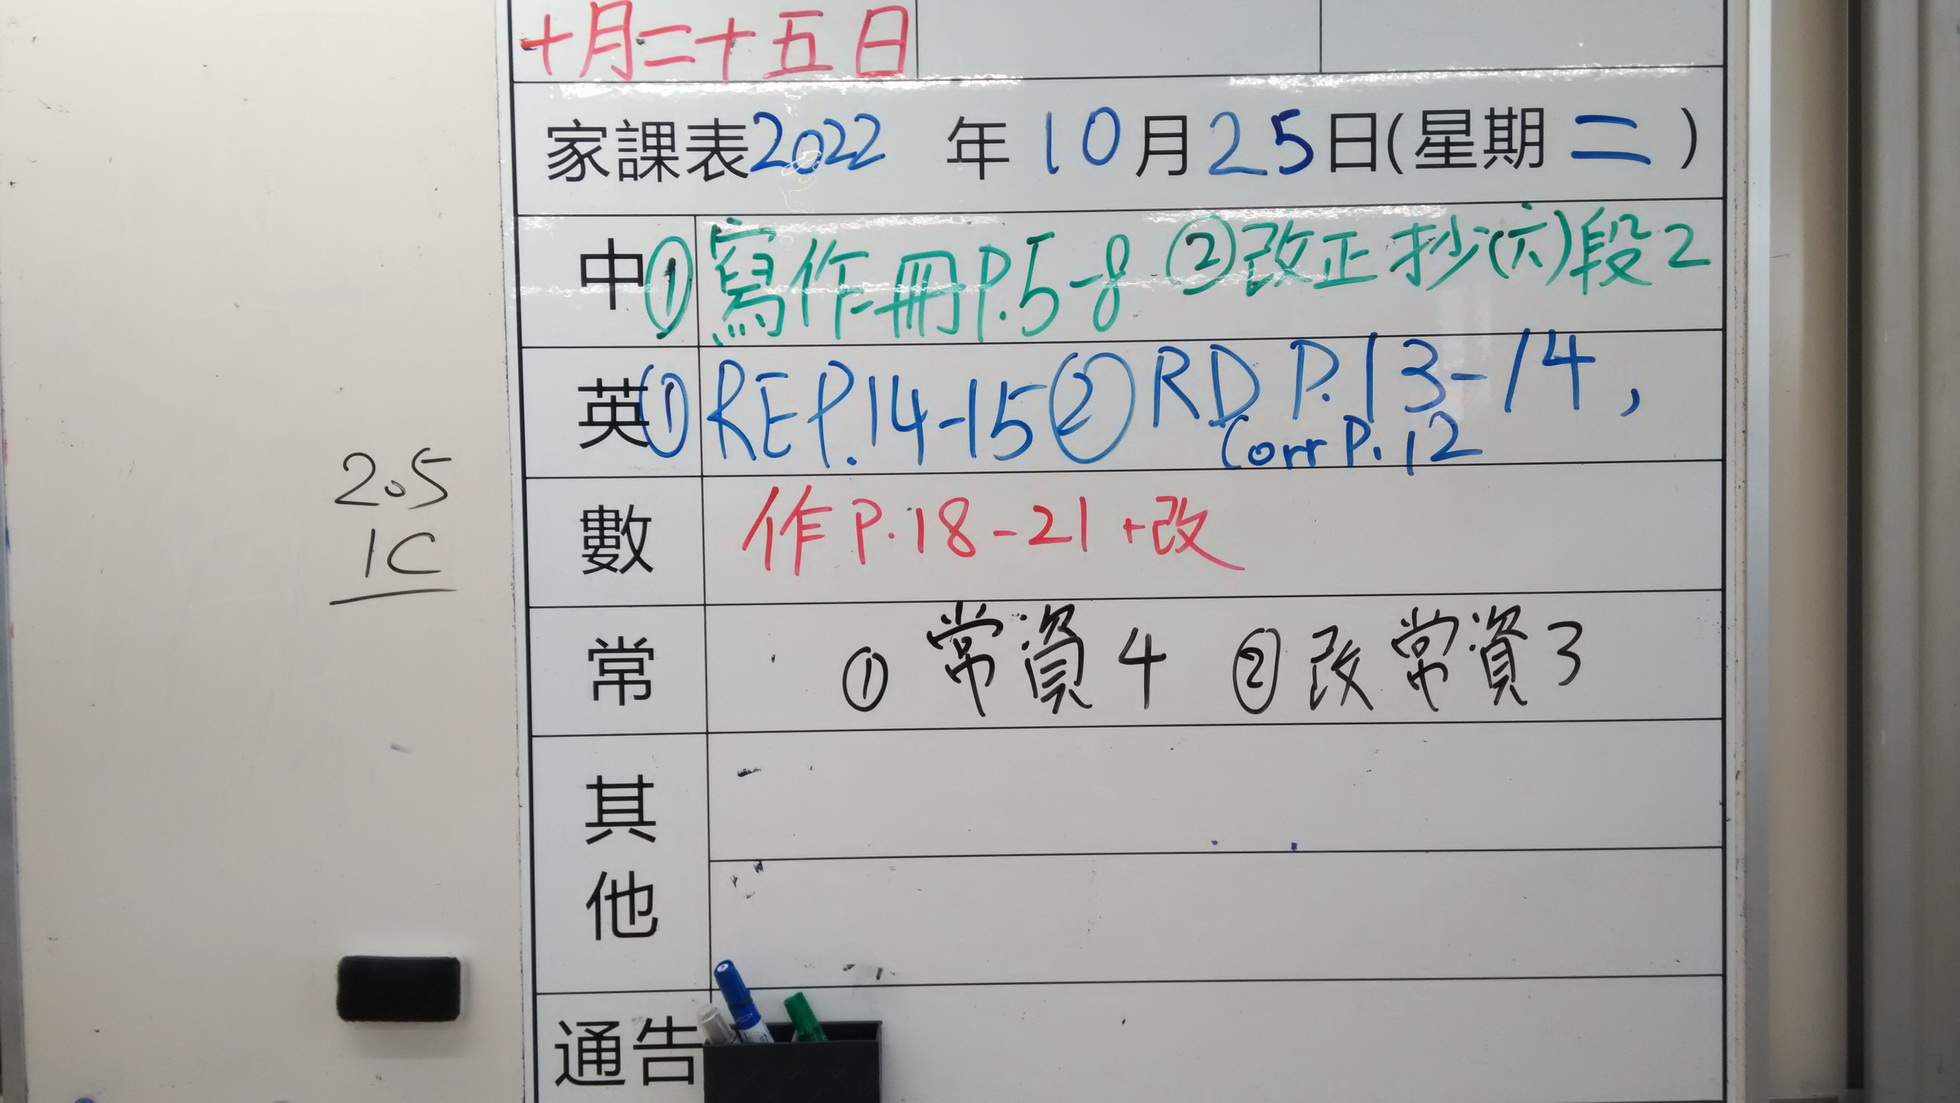 十月二十五日
家課表2022年10月25日(星期二)
中 ①寫作冊P.5-8 ②改正抄(六)段2
英 ①REP.14-15 ②RD P.13-14,
Corr P.12
2.5
1C
數 作P.18-21+改
常 ①常資4 ②改常資3
其他
通告